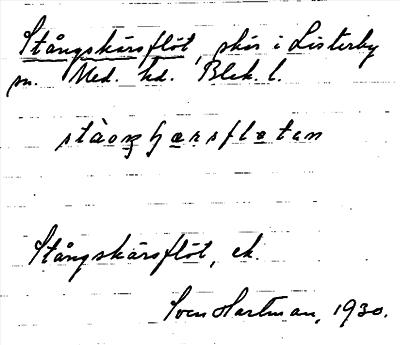 Stångskärsflöt, skär i Listerby
sn. Med. hd. Blek. l.
Stångskärsflöt, ek.
Sven Hartman, 1930.